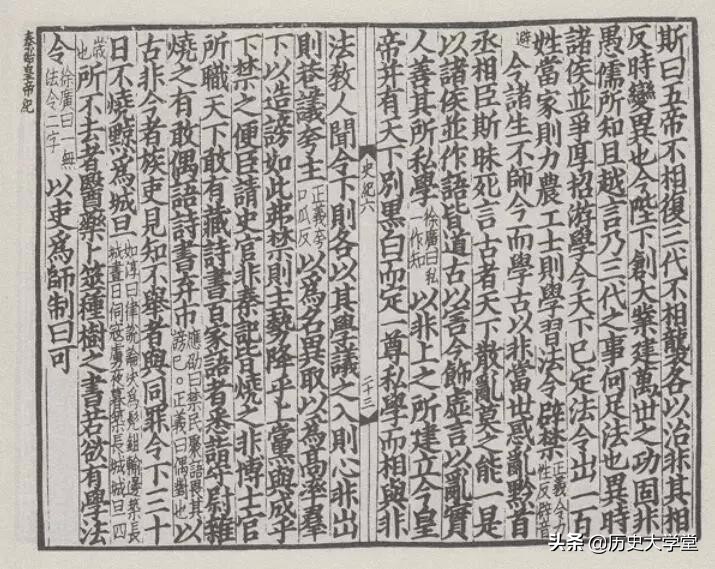 斯曰五帝不相復三代不相襲各以治非其相
反時變異也今陛下創大業建萬世之功固非
愚儒所知且越言乃三代之事何足法也異時
諸侯並爭厚招游學今天下已定法令出一百
姓當家則力農工士則學習法令辟禁正義令力性反辟音
避今諸生不師今而學古以非當世惑亂黔首
丞相臣斯昧死言古者天下散亂莫之能一是
以諸侯並作語皆道古以害今飾虛言以亂實
人善其所私學徐廣曰私一作知以非上之所建立今皇
帝并有天下別黑白而定一尊私學而相與非
史紀六
二十三
法教人聞令下則各以其學議之入則心非出
則巷議夸主正義夸口瓜反以為名異取以為高率羣
下以造謗如此弗禁則主勢降乎上黨與成乎
下禁之便臣請史官非秦記皆燒之非博士官
所職天下敢有藏詩書百家語者悉詣守尉雜
燒之有敢偶語詩書弃市應劭曰禁民聚語畏其謗己。正義曰偶對也以
古非今者族吏見知不舉者與同罪令下三十
日不燒黥為城旦如淳曰律說論決為髡鉗輸邊築長城晝日伺寇虜夜暮築長城城旦四
歲也所不去者醫藥卜筮種樹之書若欲有學法
令徐廣曰一無法令二字以吏為師制曰可
秦始皇帝紀
头条 @历史大学堂